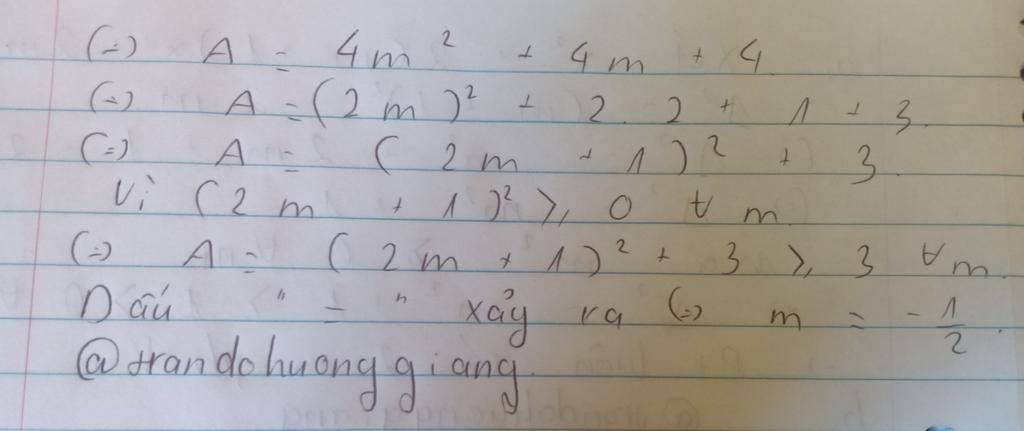 (=) A = 4m² + 4m + 4
(=) A = (2m)² + 2.2 + 1 + 3.
(=) A = (2m + 1)² + 3.
Vì (2m + 1)² ≥ 0 ∀ m
(=) A = (2m + 1)² + 3 ≥ 3 ∀ m.
Dấu " = " xảy ra (=) m = -1/2.
@trandohuonggiang.